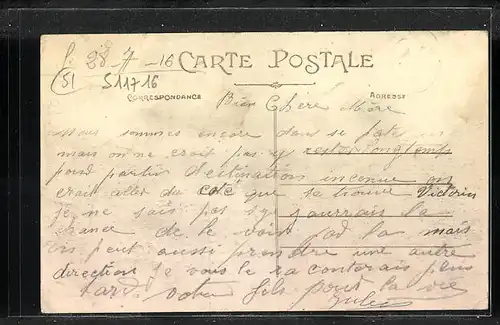 28-7-16
CARTE POSTALE
(51)
S11716
CORRESPONDANCE
ADRESSE
Bien Chère Mère
nous sommes encore dans se
mais on ne croit pas y rester longtemps
pour partir destination inconue on
croit aller du coté que se trouve Victorin
je ne sais pas si j aurrais la
chance de le voir la mais
on peut aussi prendre une autre
direction je vous le raconterais plus
tard. votre fils pour la vie
Jules